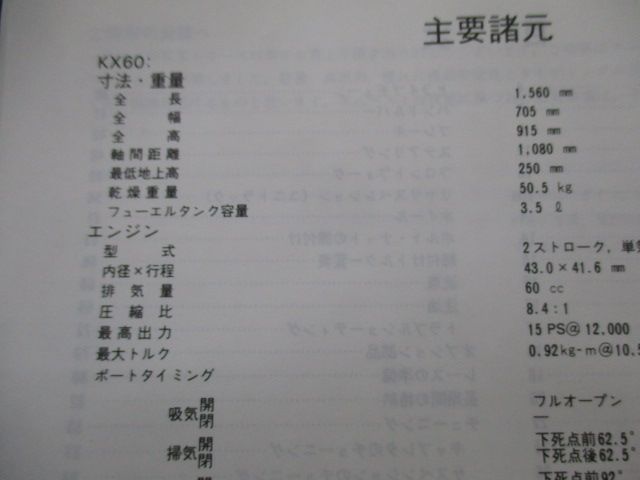 主要諸元
KX60:
寸法・重量
全長 1,560 mm
全幅 705 mm
全高 915 mm
軸間距離 1,080 mm
最低地上高 250 mm
乾燥重量 50.5 kg
フューエルタンク容量 3.5 ℓ
エンジン
型式 2ストローク,単気
内径×行程 43.0×41.6 mm
排気量 60 cc
圧縮比 8.4:1
最高出力 15 PS@12,000
最大トルク 0.92kg-m@10,5
ポートタイミング
吸気 開 フルオープン
閉 —
掃気 開 下死点前62.5°
閉 下死点後62.5°
開 下死点前92°